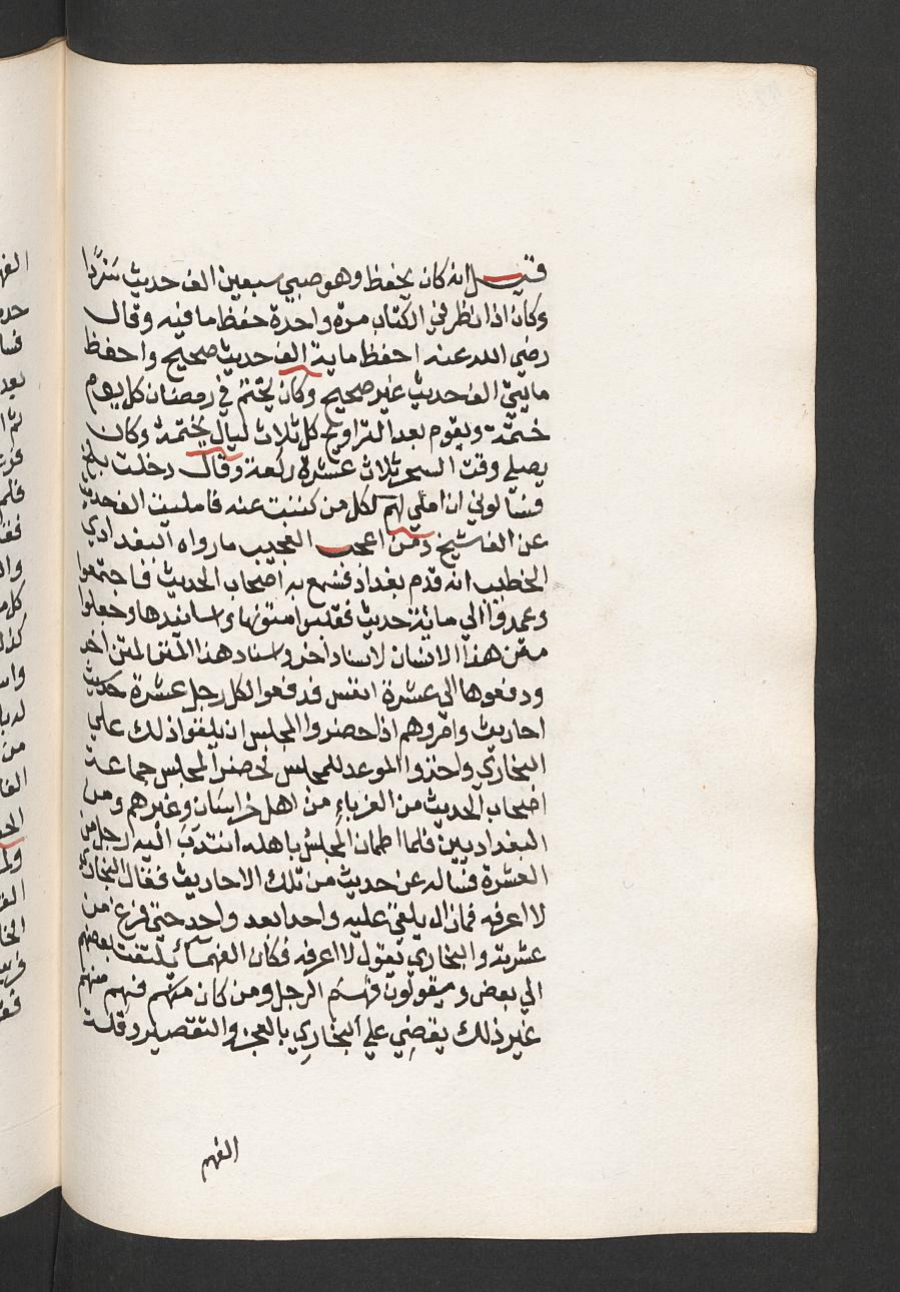 قيل انه كان يحفظ وهو صبي سبعين الف حديث سردًا
وكان اذا نظر في الكتاب مرة واحدة حفظ ما فيه وقال
رضي الله عنه احفظ ماية الف حديث صحيح واحفظ
مايتي الف حديث غير صحيح وكان يختم في رمضان كل يوم
ختمة ويقوم بعد التراويح كل ثلاث ليال بختمة وكان
يصلي وقت السحر ثلاث عشرة ركعة وقال دخلت بلخ
فسألوني ان املي لهم لكل من كتبت عنه فامليت الف حديث
عن الف شيخ ومن اعجب العجيب ما رواه البغدادي
الخطيب انه قدم بغداد فسمع به اصحاب الحديث فاجتمعوا
وعمدوا الي مائة حديث فقلبوا متونها واسانيدها وجعلوا
متن هذا الاسناد لاسناد اخر واسناد هذا المتن لمتن اخر
ودفعوها الي عشرة انفس فدفعوا لكل رجل عشرة
احاديث وامروهم اذا حضروا المجلس ان يلقوا ذلك علي
البخاري واخذوا الموعد للمجلس فحضر المجلس جماعة
اصحاب الحديث من الغرباء من اهل خراسان وغيرهم ومن
البغداديين فلما اطمان المجلس باهله انتدب اليه رجل من
العشرة فساله عن حديث من تلك الاحاديث فقال البخاري
لا اعرفه فمازال يلقي عليه واحدا بعد واحد حتي فرغ من
عشرته والبخاري يقول لا اعرفه فكان الفهماء يلتفت بعضهم
الي بعض ويقولون فهم الرجل ومن كان منهم فهم منهم
غير ذلك يقضي علي البخاري بالعجز والتقصير وقلة
الفهم